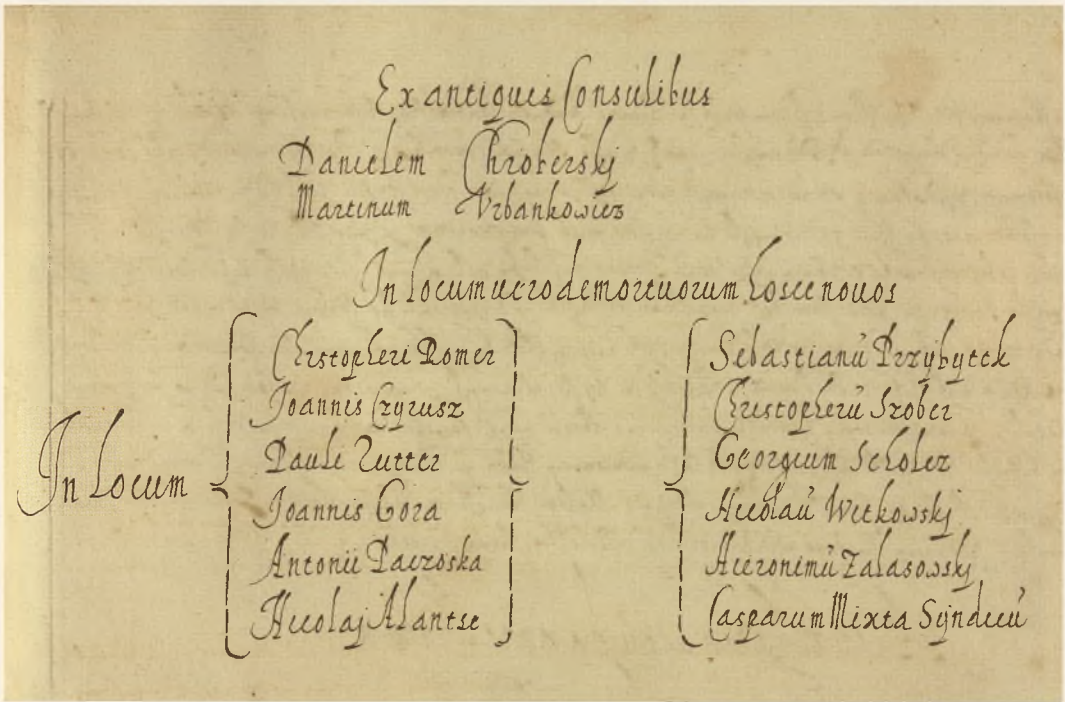 Ex antiquis Consulibus
Danielem Chroberskj
Martinum Vrbankowicz
In locum uero demortuorum hosce nouos
In locum
Christopheri Romer
Joannis Czyrusz
Pauli Rutter
Joannis Gora
Antonii Paczoska
Nicolaj Alantse
Sebastianũ Przybyttk
Christopherũ Szober
Georgium Scholcz
Nicolaũ Witkowskj
Hieronimũ Zalasowskj
Casparum Mixta Syndicũ